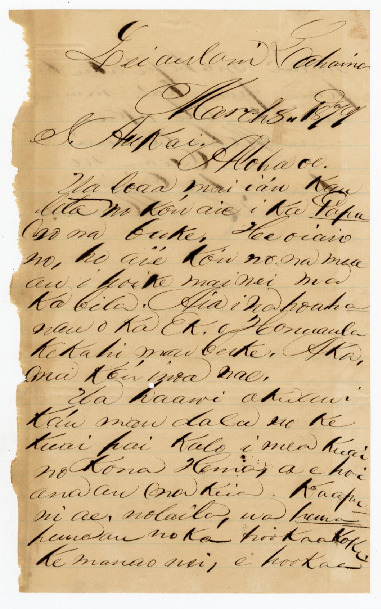 Leiaulani Lahaina
March 5" 1877
J. Aukai.
Aloha oe.
Ua loaa mai iau Kau
leta no Kou aie i Ka Papa
no na buke. He oiaio
no, he aie kou no na mea
au i hoike mai nei ma
Ka bila. Aia i na hoaha
nau o Ka Ek. o Honuaula
Kekahi mau buke. AKa,
Kou iwa nae.
Ua haawi aku
Kau mau dala no Ke
Kuai pai Kalo i mea Kuai
no Kona Hema, a e hoi
ana au Kaapu
ni ae. nolaila, ua
no Ka hookaa
Ke manao nei, e hookaa